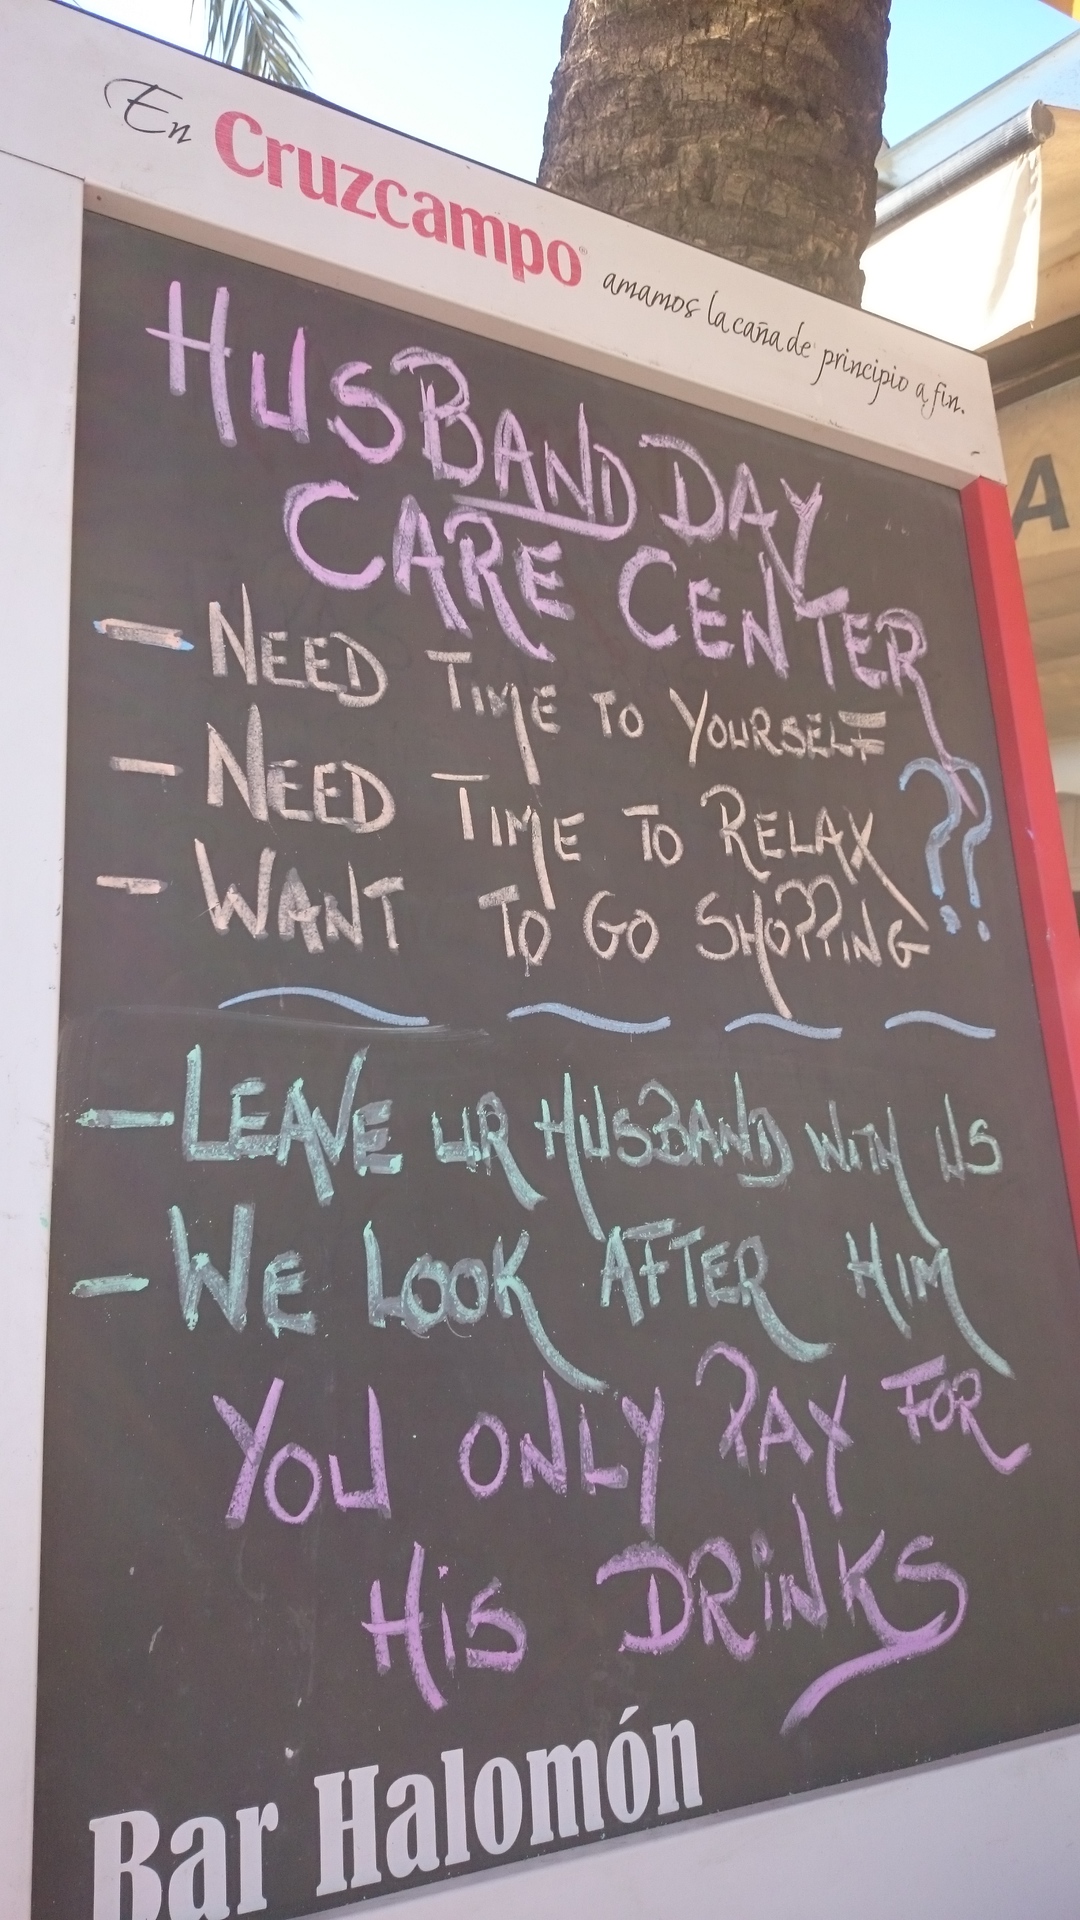 En Cruzcampo® amamos la caña de principio a fin.
HUSBAND DAY
CARE CENTER
- NEED TIME TO YOURSELF
- NEED TIME TO RELAX ??
- WANT TO GO SHOPPING
- LEAVE UR HUSBAND WITH US
- WE LOOK AFTER HIM
YOU ONLY PAY FOR
HIS DRINKS
Bar Halomón
A